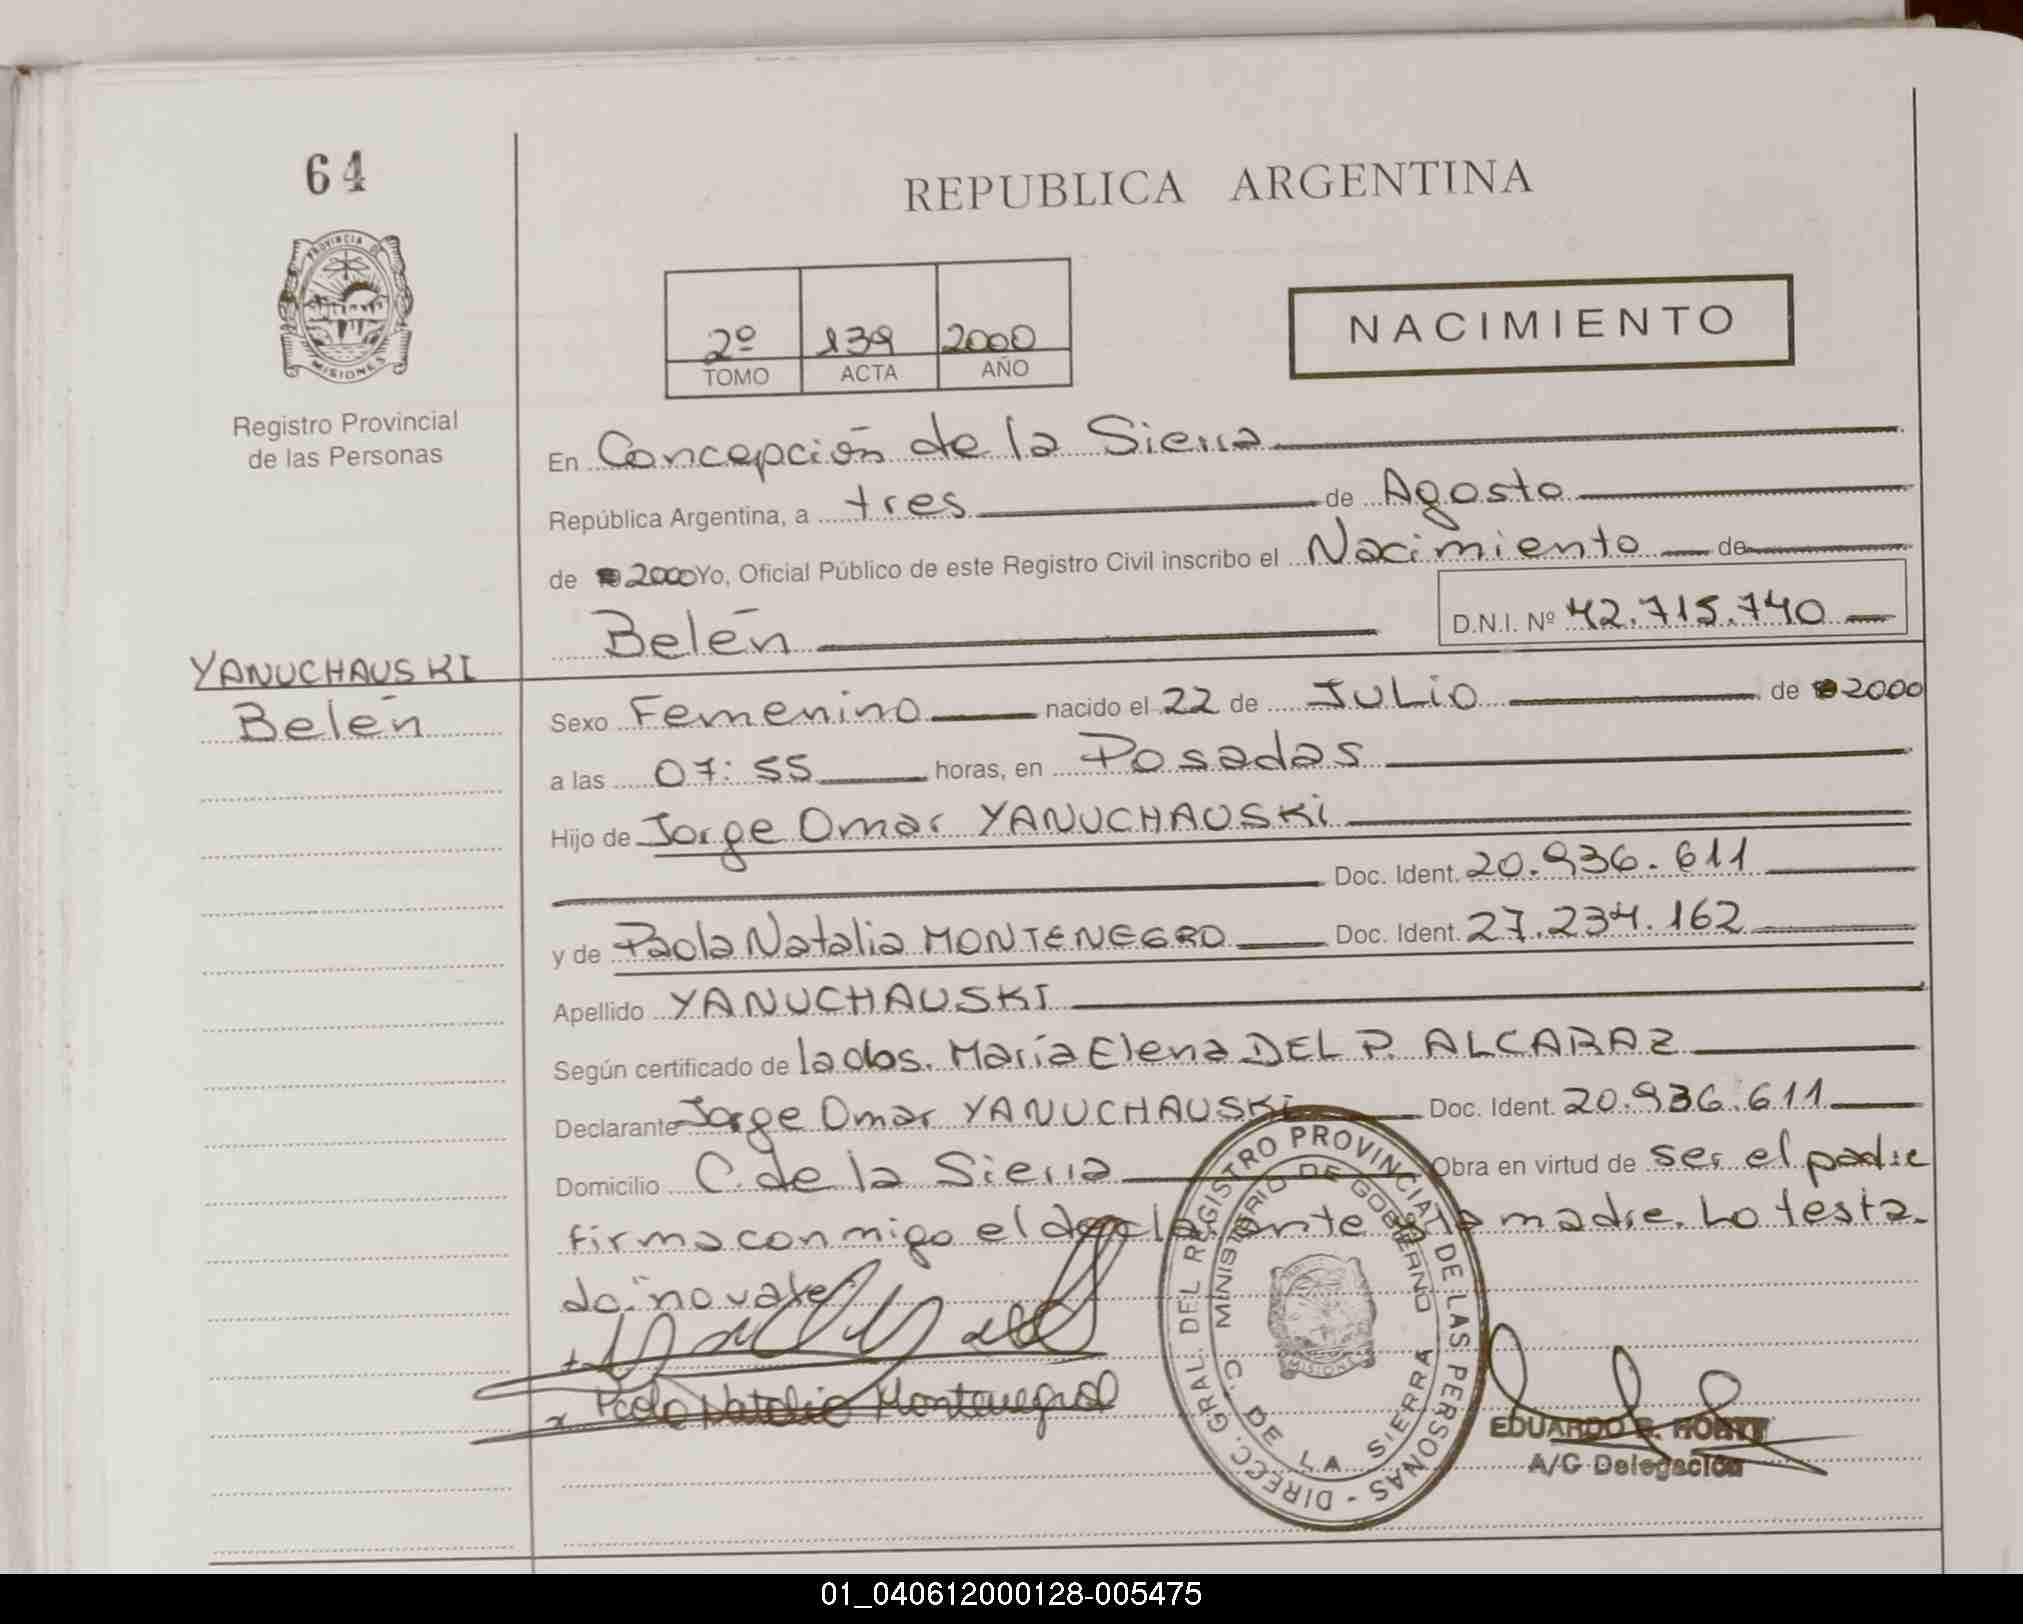 64
REPUBLICA ARGENTINA
PROVINCIA DE
MISIONES
Registro Provincial
de las Personas
2º 139 2000
TOMO ACTA AÑO
NACIMIENTO
En Concepción de la Sierra
República Argentina, a tres de Agosto
de 2000 Yo, Oficial Público de este Registro Civil inscribo el Nacimiento de
Belén D.N.I. Nº 42.715.740
YANUCHAUSKI
Belén
Sexo Femenino nacido el 22 de JULIO de 2000
a las 07:55 horas, en Posadas
Hijo de Jorge Omar YANUCHAUSKI
Doc. Ident. 20.936.611
y de Paola Natalia MONTENEGRO Doc. Ident. 27.234.162
Apellido YANUCHAUSKI
Según certificado de la obs. María Elena DEL P. ALCARAZ
Declarante Jorge Omar YANUCHAUSKI Doc. Ident. 20.936.611
Domicilio C. de la Sierra Obra en virtud de ser el padre
firma conmigo el declarante y la madre. Lo testa-
do: no vale
Paola Natalia Montenegro
DIRECC. GRAL. DEL REGISTRO PROVINCIAL DE LAS PERSONAS -
MINISTERIO DE GOBIERNO
C. DE LA SIERRA
MISIONES
EDUARDO
A/C Delegación
01_040612000128-005475